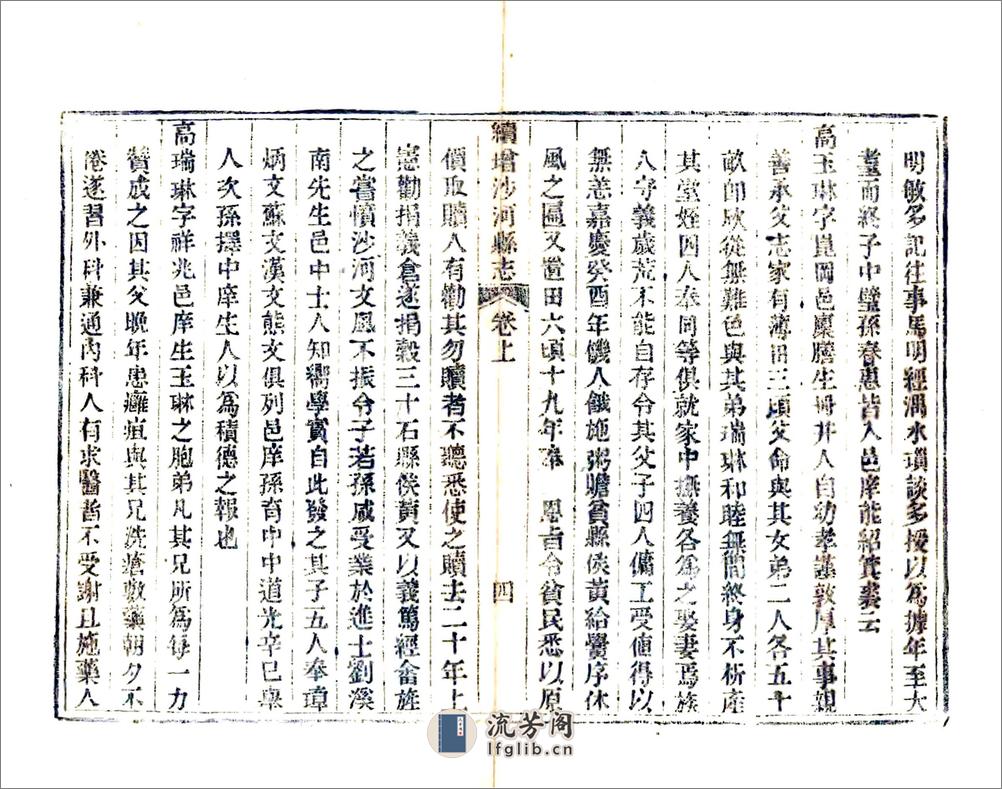 明敏多記往事馬明經湡水瑣談多援以為據年至大
耋而終子中璧孫春惠皆入邑庠能紹箕裘云
高玉琳字崑岡邑廩膳生冊井人自幼孝謹敦厚其事親
善承父志家有薄田三頃父命與其女弟二人各五十
畝卽欣從無難色與其弟瑞琳和睦無間終身不析產
其堂姪四人奉同等俱就家中撫養各為之娶妻焉族
人守義歲荒不能自存令其父子四人傭工受值得以
無恙嘉慶癸酉年饑人餓施粥贍貧縣侯黃給黌序休
風之匾又置田六頃十九年奉 恩旨令貧民悉以原
續增沙河縣志 卷上 四
價取贖人有勸其勿贖者不聽悉使之贖去二十年上
憲勸捐義倉遂捐穀三十石縣侯黃又以義篤經畬旌
之嘗憤沙河文風不振令子若孫咸受業於進士劉溪
南先生邑中士人知嚮學實自此發之其子五人奉璋
炳文蘇文漢文熊文俱列邑庠孫育中中道光辛巳舉
人次孫擇中庠生人以為積德之報也
高瑞琳字祥兆邑庠生玉琳之胞弟凡其兄所為每一力
贊成之因其父晚年患癰疽與其兄洗瘡敷藥朝夕不
倦遂習外科兼通內科人有求醫者不受謝且施藥人
流芳閣
lfglib.cn